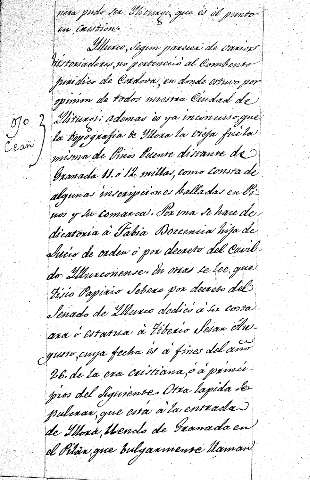 pudo ser Iliturgi, que es el punto
en cuestion.
Illurco, segun parecer de varios
historiadores, no pertenecio al Combento
juridico de Cordova, en donde estuvo por
opinion de todos nuestra Ciudad de
Iliturgi: ademas es ya inconcuso, que
la topografia de Illora la vieja fué la
misma de Pinos Puente distante de
Granada 11. ó 12. millas, como consta de
algunas inscripciones halladas en Pi-
nos y su comarca. Por una se hace de-
dicatoria à Fabia Bocconia hija de
Lucio de orden ó por decreto del Cavil-
do Illurconense. En otras se lee, que
Papirio Sebero por decreto del
Senado de Illurco dedicó à su costa
ara ó estatua à Tiberio Sesar Au-
gusto, cuya fecha es à fines del año
26. de la era cristiana, ó à princi-
pios del siguiente. Otra lapida se-
pulcrar, que está à la entrada
de Illora, llendo de Granada en
el Pilàr, que bulgarmente llaman
ojo
Cean